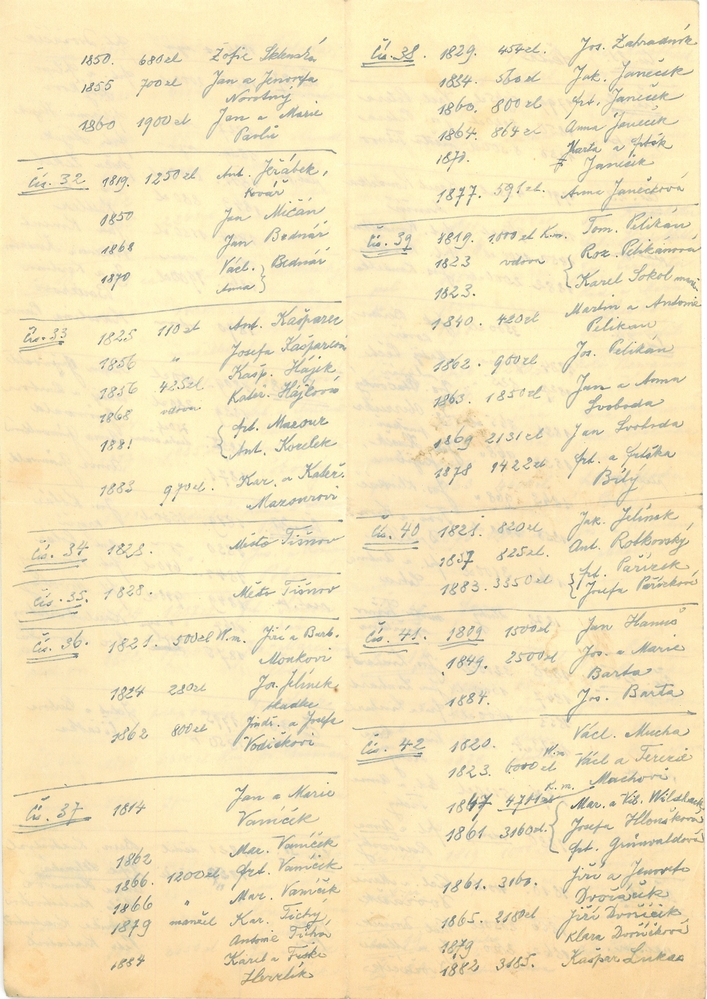 1850. 680 zl Žofie Sklenská
1855 700 zl Jan a Jenovefa
Novotný
1860 1900 zl Jan a Marie
Pavlů
Čís. 32 1819. 1250 zl Ant. Jeřábek,
kovář
1850 Jan Mičán
1868 Jan Bednář
1870 Václ. } Bednář
Anna }
Čís. 33 1825 110 zl Ant. Kašparec
1856 " Josefa Kašparcova
Kašp. Hájek
1856 425 zl Kateř. Hájková
1868 vdova
{ frt. Mazour
1881 Ant. Kozelek
1883 970 zl. Kar. a Kateř.
Mazourovi
Čís. 34 1828. Město Tišnov
Čís. 35. 1828. Město Tišnov
Čís. 36. 1821. 500 zl W.m. Jiří a Barb.
1824 280 zl Jos. Jelínek
1862 800 zl Jindř. a Josefa
Vodičkovi
Čís. 37 1814 Jan a Marie
Vaníček
1862 Mar. Vaníček
1866. 1200 zl frt. Vaníček
1866 " Mar. Vaníček
1879 manžel Kar. Tichý
Antonie Tichá
1884 Karel a
Čís. 38. 1829. 454 zl. Jos. Zahradník
1834. 560 zl Jak. Janeček
1860. 800 zl frt. Janeček
1864. 864 zl Anna Janeček
1877. Janeček
1877. 591 zl. Anna Janečková
Čís. 39 1819. 1,000 zl K.m. Tom. Pelikán
1823 vdova { Roz. Pelikánová
1823. Karel Sokol
1840. 420 zl Martin a Antonie
Pelikan
1862. 900 zl Jos. Pelikán
1863. 1850 zl Jan a Anna
Svoboda
1869 2131 zl Jan Svoboda
1878 1422 zl frt. a frtška
Bílý
Čís. 40 1821. 820 zl Jak. Jelínek
1857 825 zl. Ant. Rotkovský
1883. 3350 zl { frt. Pařízek
Josefa Pařízková
Čís. 41. 1809 1500 zl Jan Hanuš
1849. 2500 zl Jos. a Marie
Barta
1884. Jos. Barta
Čís. 42 1820. Václ. Mucha
1823. 6000 zl W.m. Václ a Terezie
Muchovi
1847 K.m. { Mar. a Vil.
1861 3160 zl. Josefa
frt. Grünwaldová
1861. 3160. Jiří a Jenovefa
Dvořáček
1865. 2180 zl Jiří Dvořáček
1879 Klara Dvořáčková
1882 3185. Kašpar Lukas